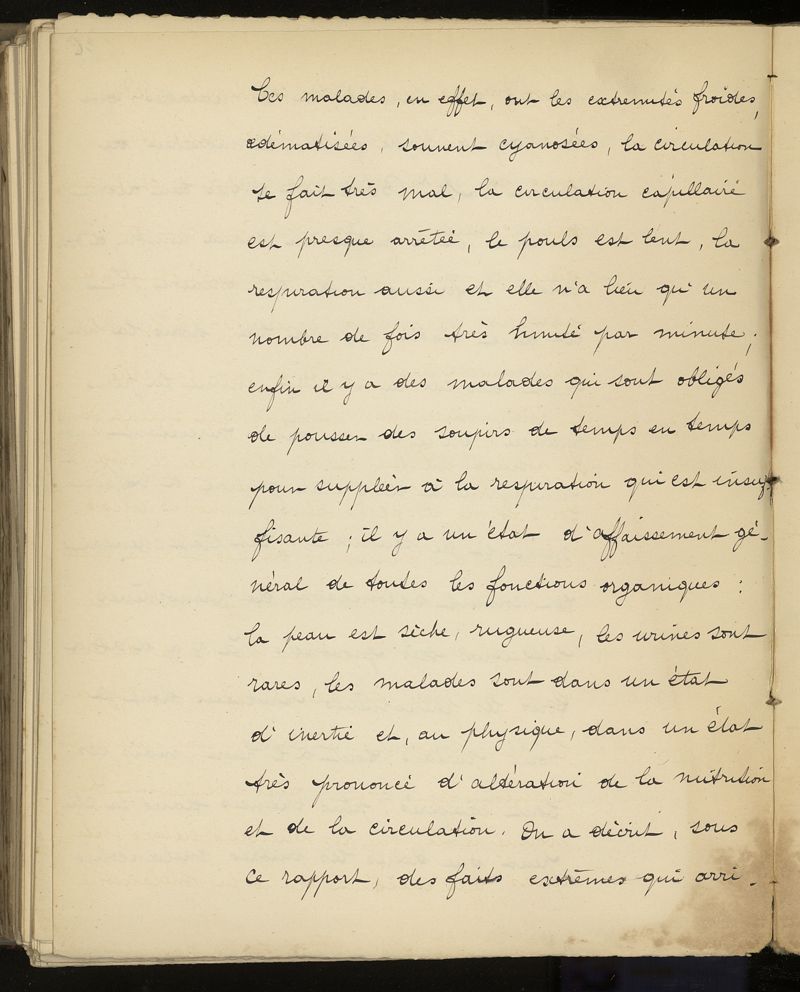 Ces malades, en effet, ont les extremités froides,
œdématisées, souvent cyanosées, la circulation
se fait très mal, la circulation capillaire
est presque arrêtée, le pouls est lent, la
respiration aussi et elle n'a lieu qu'un
nombre de fois très limité par minute ;
enfin il y a des malades qui sont obligés
de pousser des soupirs de temps en temps
pour suppléer à la respiration qui est insuf-
fisante ; il y a un état d'affaissement gé-
néral de toutes les fonctions organiques :
la peau est sèche, rugueuse, les urines sont
rares, les malades sont dans un état
d'inertie et, au physique, dans un état
très prononcé d'altération de la nutrition
et de la circulation. On a décrit, sous
ce rapport, des faits extrêmes qui arri-